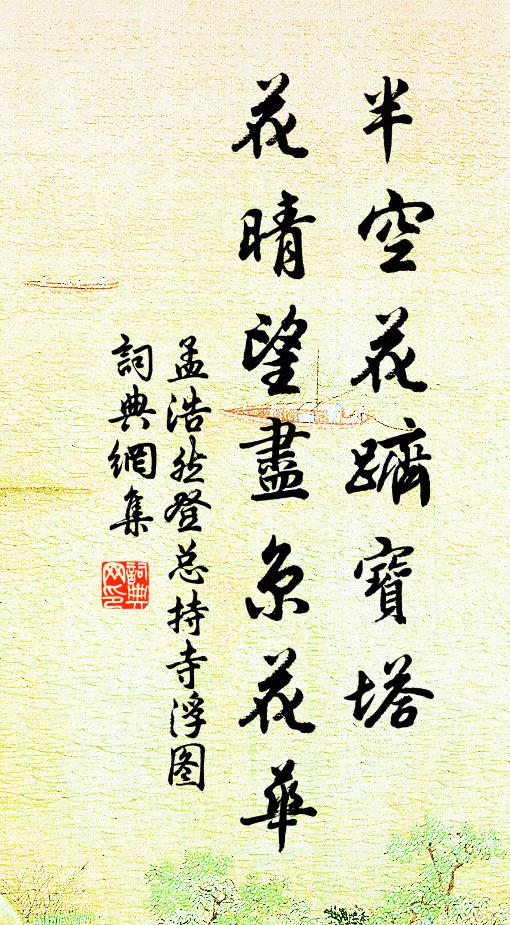 半空花躋寶塔
花晴望盡京花華
孟浩然登总持寺浮图
詞典網集
詞典網印